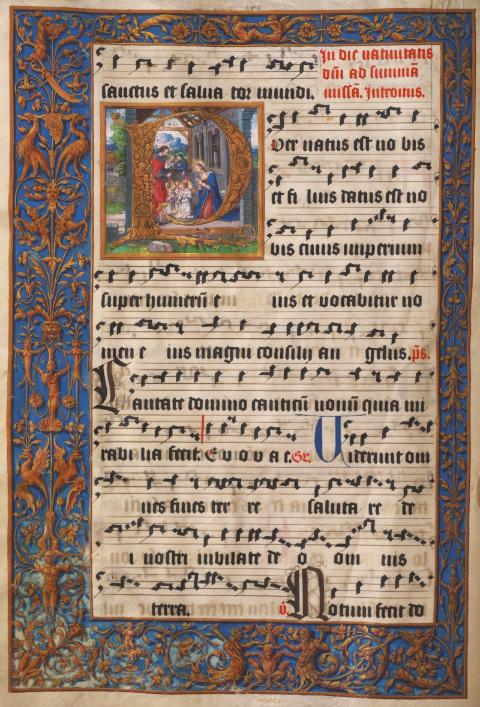 In die natiuitatis
dñi ad summã
sanctus et salua tor mundi. missã. Introitus.
Puer natus est no bis
et fi lius datus est no
bis cuius imperium
super humerũ e ius et vocabitur no
men e ius magni consilij an gelus. ps.
Cantate domino canticũ nouum quia mi
rabi lia fecit. E v o v a e. Gr. Uiderunt om
nes fines ter re saluta re de
i nostri iubilate de o om nis
terra. v. Notum fecit do